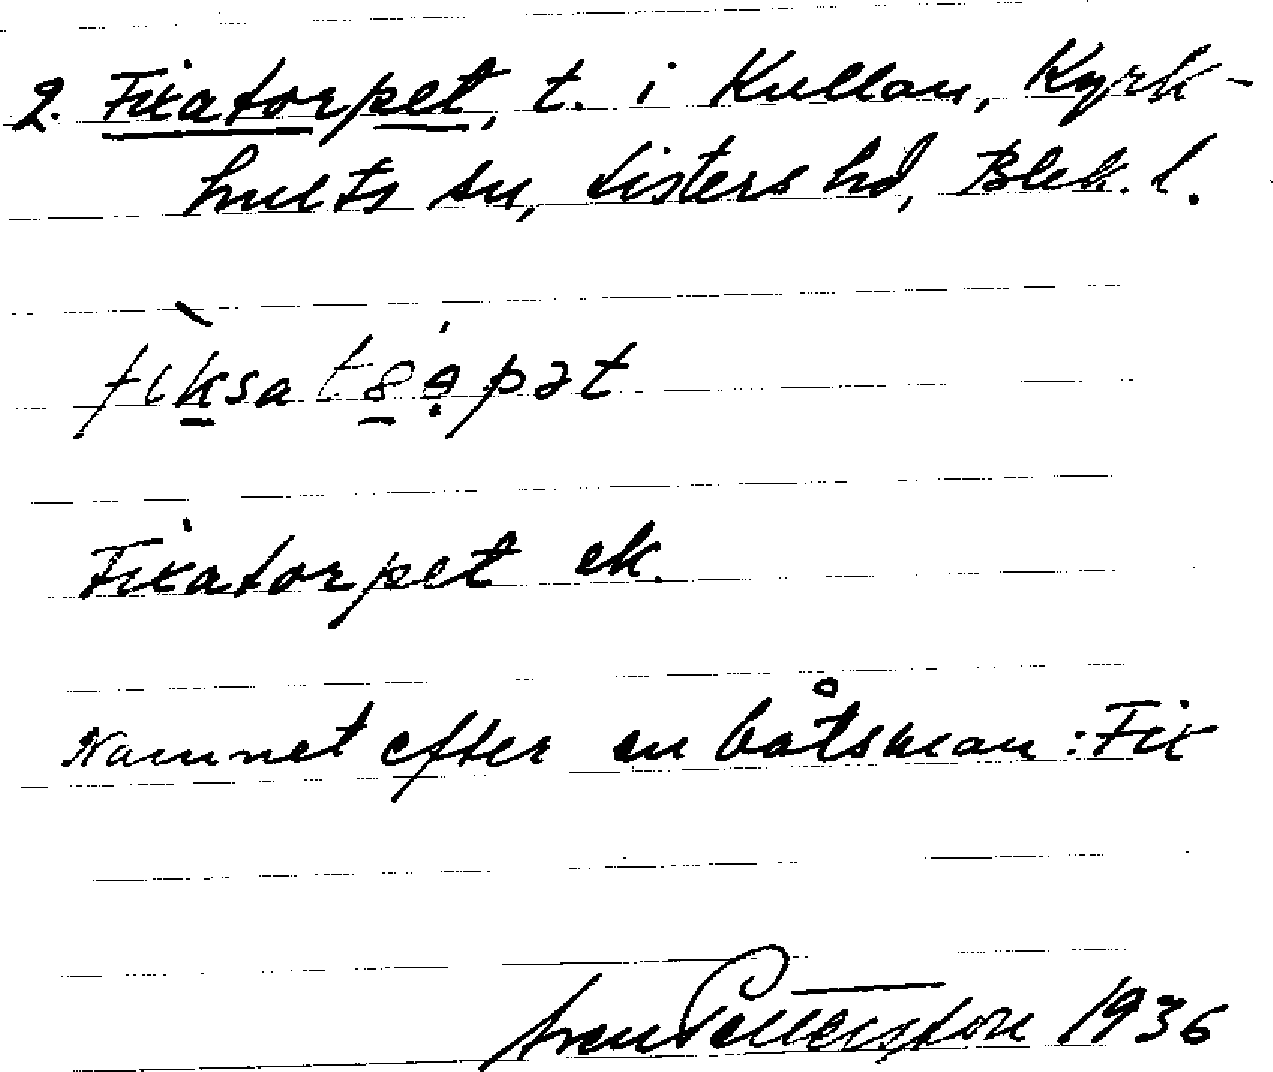 2. Fixatorpet, t. i Kullan, Kyrk-
hults sn, Listers hd, Blek. l.
Fixatorpet ek.
Namnet efter en båtsman: Fix
Sven Pettersson 1936